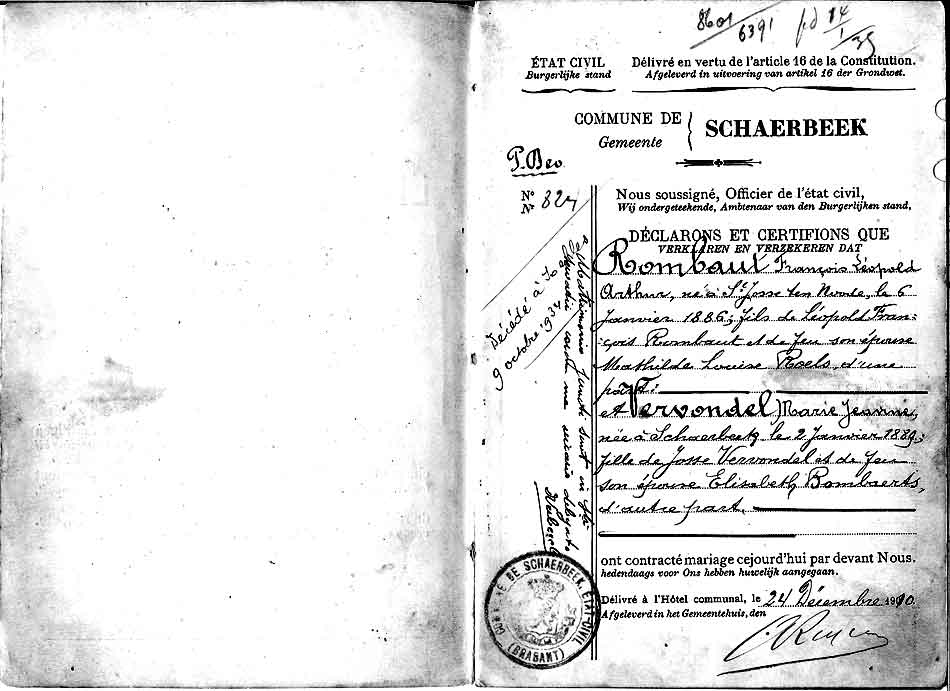 8601
6391
14
ÉTAT CIVIL
Burgerlijke stand
Délivré en vertu de l'article 16 de la Constitution.
Afgeleverd in uitvoering van artikel 16 der Grondwet.
COMMUNE DE
Gemeente
SCHAERBEEK
P. Bev
N°
Nr
827
Nous soussigné, Officier de l'état civil,
Wij ondergeteekende, Ambtenaar van den Burgerlijken stand,
DÉCLARONS ET CERTIFIONS QUE
VERKLAREN EN VERZEKEREN DAT
Rombaut François Léopold
Arthur, né à St Josse ten Noode, le 6
Janvier 1886; fils de Léopold Fran-
çois Rombaut et de feu son épouse
Mathilde Louise Roels, d'une
part;
et Vervondel Marie Jeanne,
née à Schaerbeek, le 2 Janvier 1889;
fille de Josse Vervondel et de feu
son épouse Elisabeth Bombaerts,
d'autre part.
ont contracté mariage cejourd'hui par devant Nous.
hedendaags voor Ons hebben huwelijk aangegaan.
Délivré à l'Hôtel communal, le 24 Décembre 1910.
Afgeleverd in het Gemeentehuis, den
Décédé à
9 octobre 1937
Matrimonio juncti sunt in
coram me vicario
COMMUNE DE SCHAERBEEK. ÉTAT-CIVIL
(BRABANT)